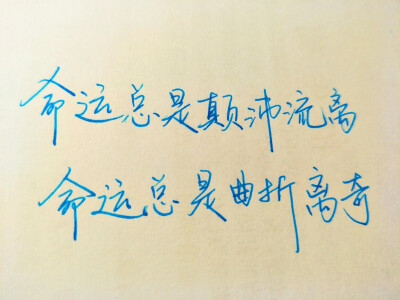 命运总是颠沛流离
命运总是曲折离奇